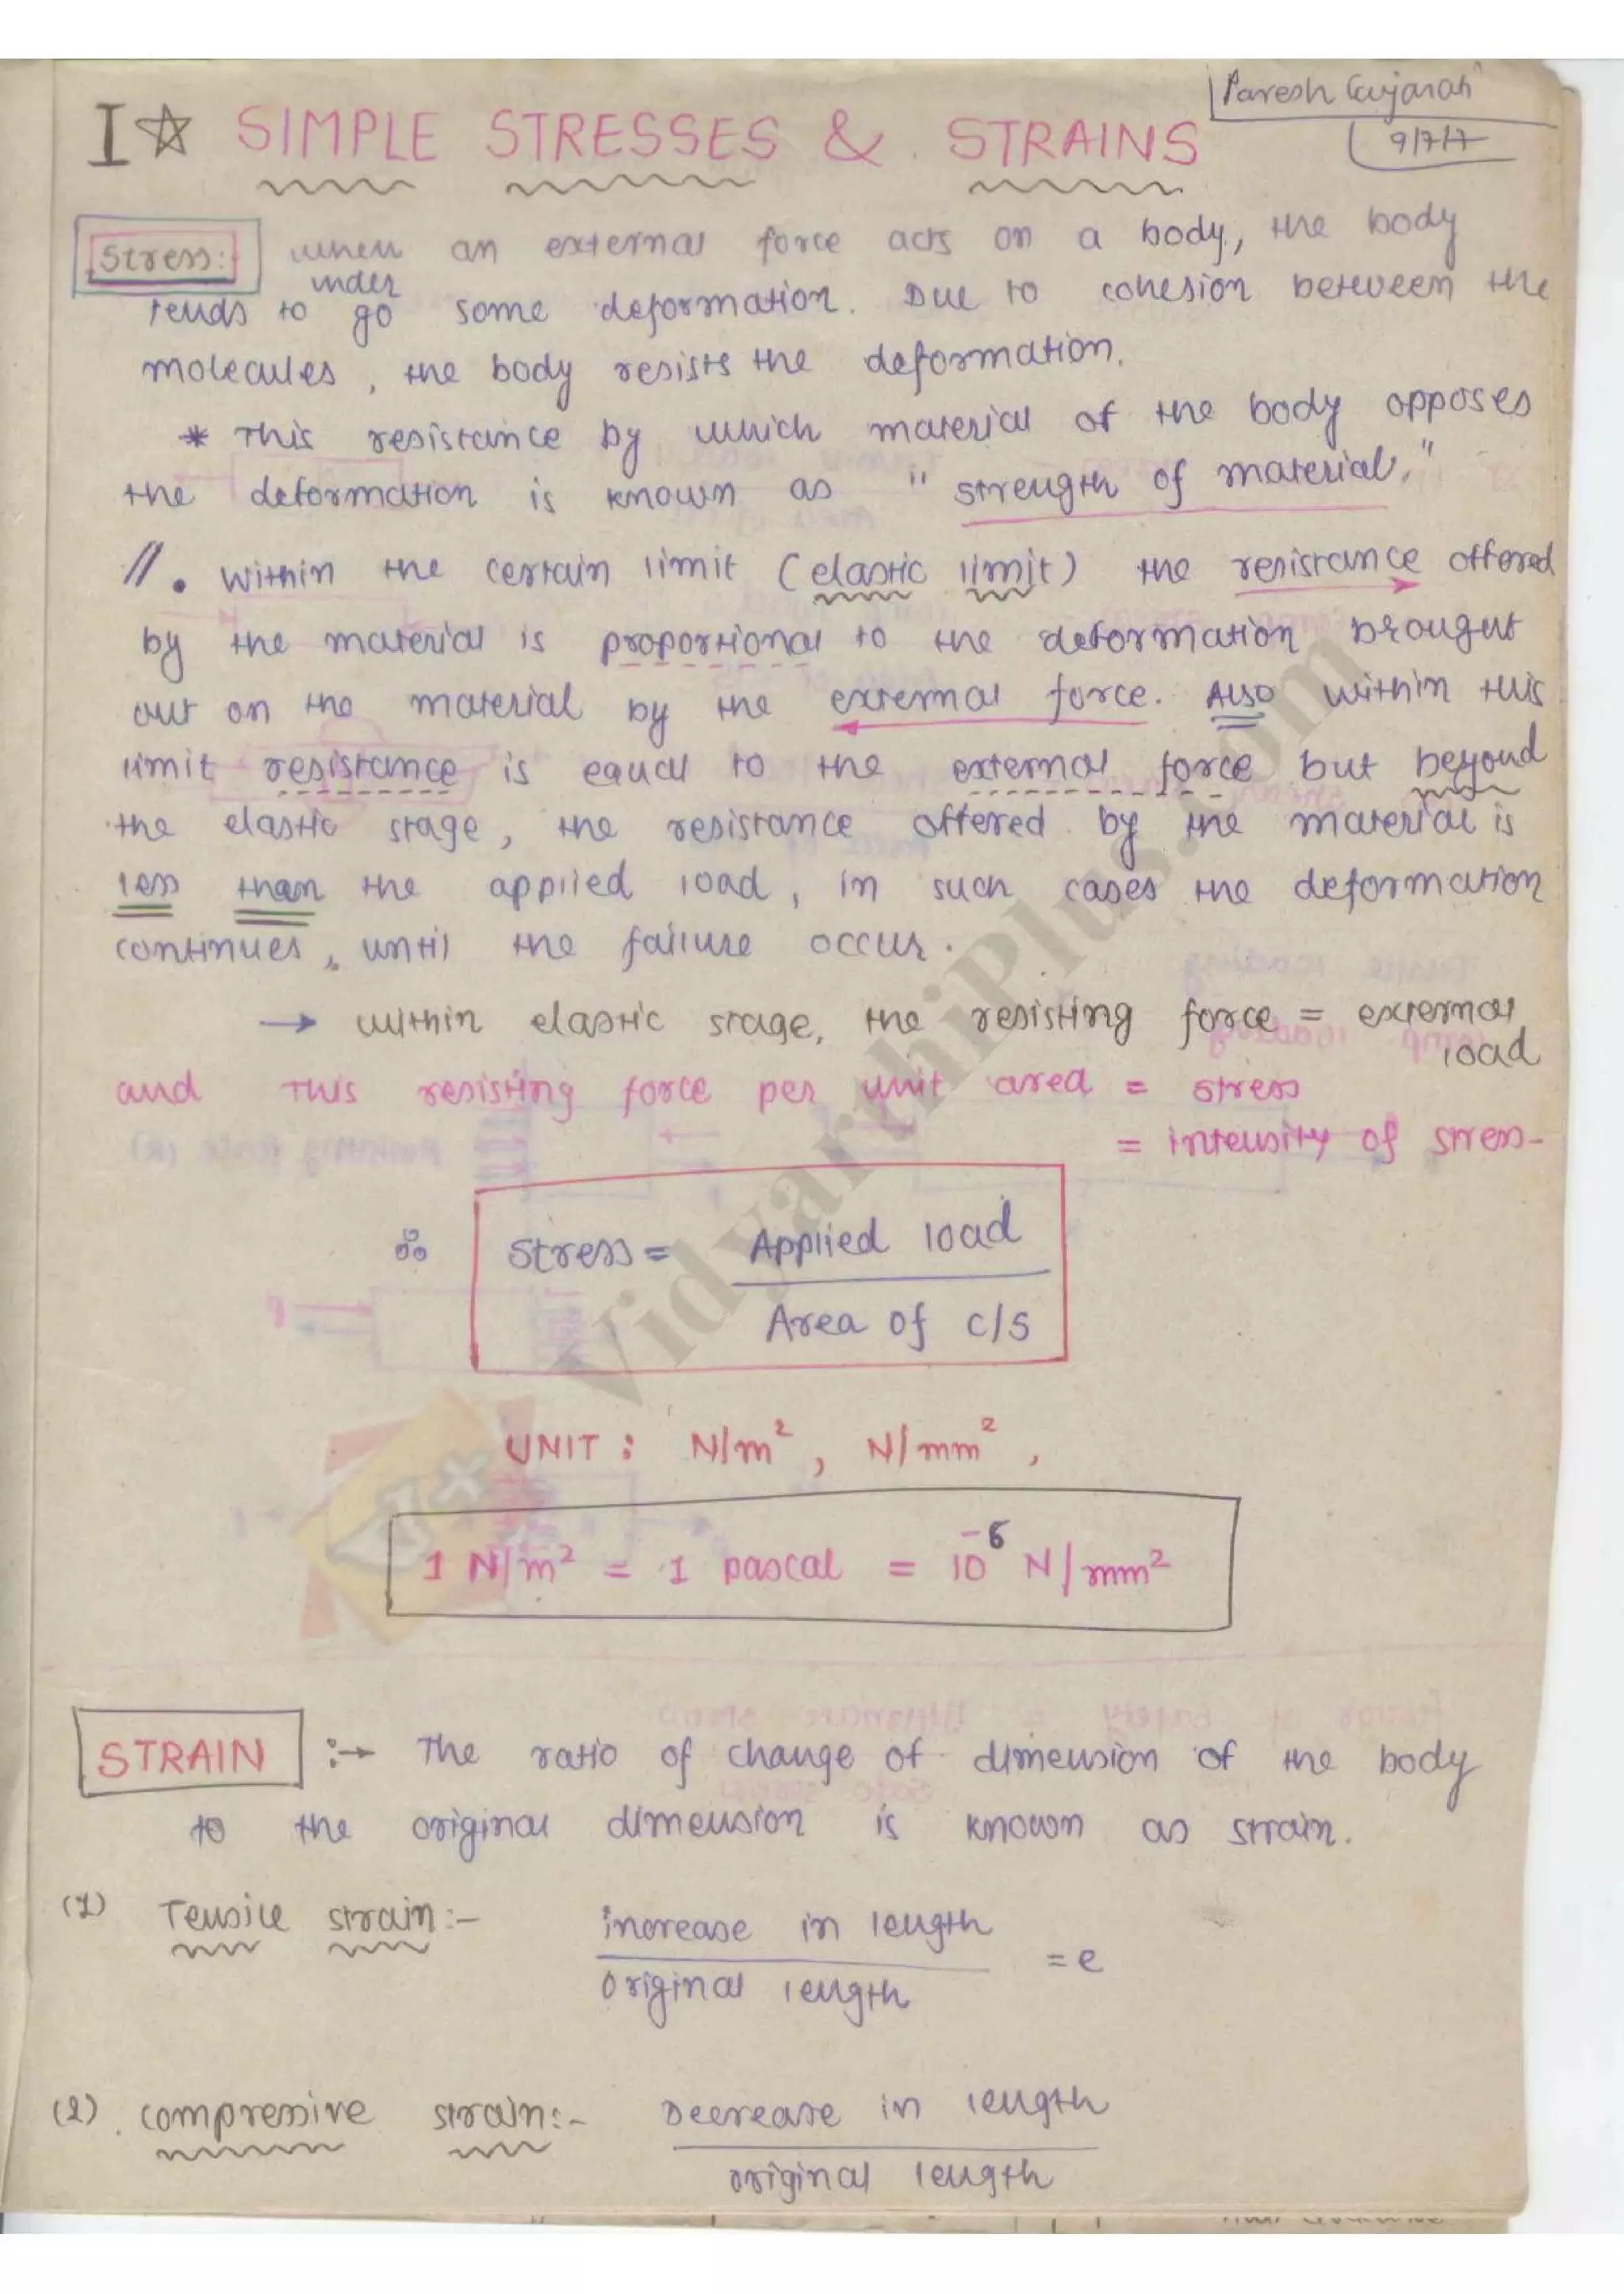 Paresh Gujarati
9/7/17
I ☆ SIMPLE STRESSES & STRAINS
Stress: when an external force acts on a body, the body
tends to under go some deformation. Due to cohesion between the
molecules, the body resists the deformation.
* This resistance by which material of the body opposes
the deformation is known as "strength of material."
//. Within the certain limit (elastic limit) the resistance offered
by the material is proportional to the deformation brought
out on the material by the external force. Also within this
limit resistance is equal to the external force but beyond
the elastic stage, the resistance offered by the material is
less than the applied load, in such cases the deformation
continues, until the failure occur.
→ within elastic stage, the resisting force = external load
and This resisting force per unit area = stress
= intensity of stress-
∴ Stress = Applied load
Area of c/s
UNIT : N/m², N/mm²,
1 N/m² = 1 pascal = 10⁻⁶ N/mm²
STRAIN :→ The ratio of change of dimension of the body
to the original dimension is known as strain.
(1) Tensile strain:- increase in length
original length = e
(2). compressive strain:- Decrease in length
original length
VidyarthiPlus.com